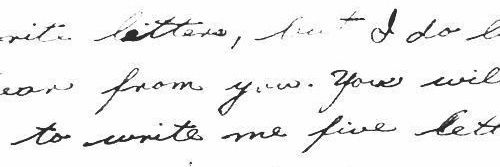 write letters, but I do l
hear from you. You wil
to write me five lett